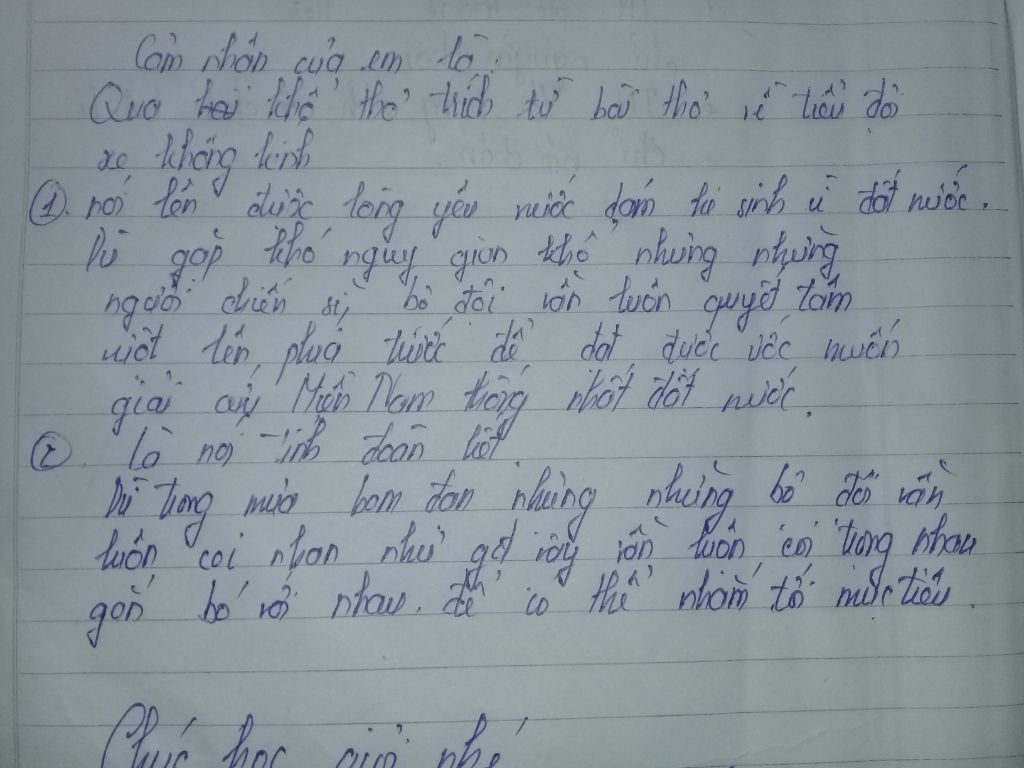 Cảm nhận của em là:
Qua hai khổ thơ trích từ bài thơ về tiểu đội
xe không kính
① nói lên được lòng yêu nước dám hi sinh vì đất nước.
Dù gặp khó nguy gian khổ nhưng những
người chiến sĩ, bộ đội vẫn luôn quyết tâm
vượt lên phía trước để đạt được ước muốn
giải Miền Nam thống nhất đất nước.
② Là nói tình đoàn kết
Dù trong mưa bom đạn nhưng những bộ đội vẫn
luôn coi nhau như vậy vẫn luôn coi trọng nhau
gắn bó với nhau. để có thể nhắm tới mục tiêu.
Chúc học giỏi nhé